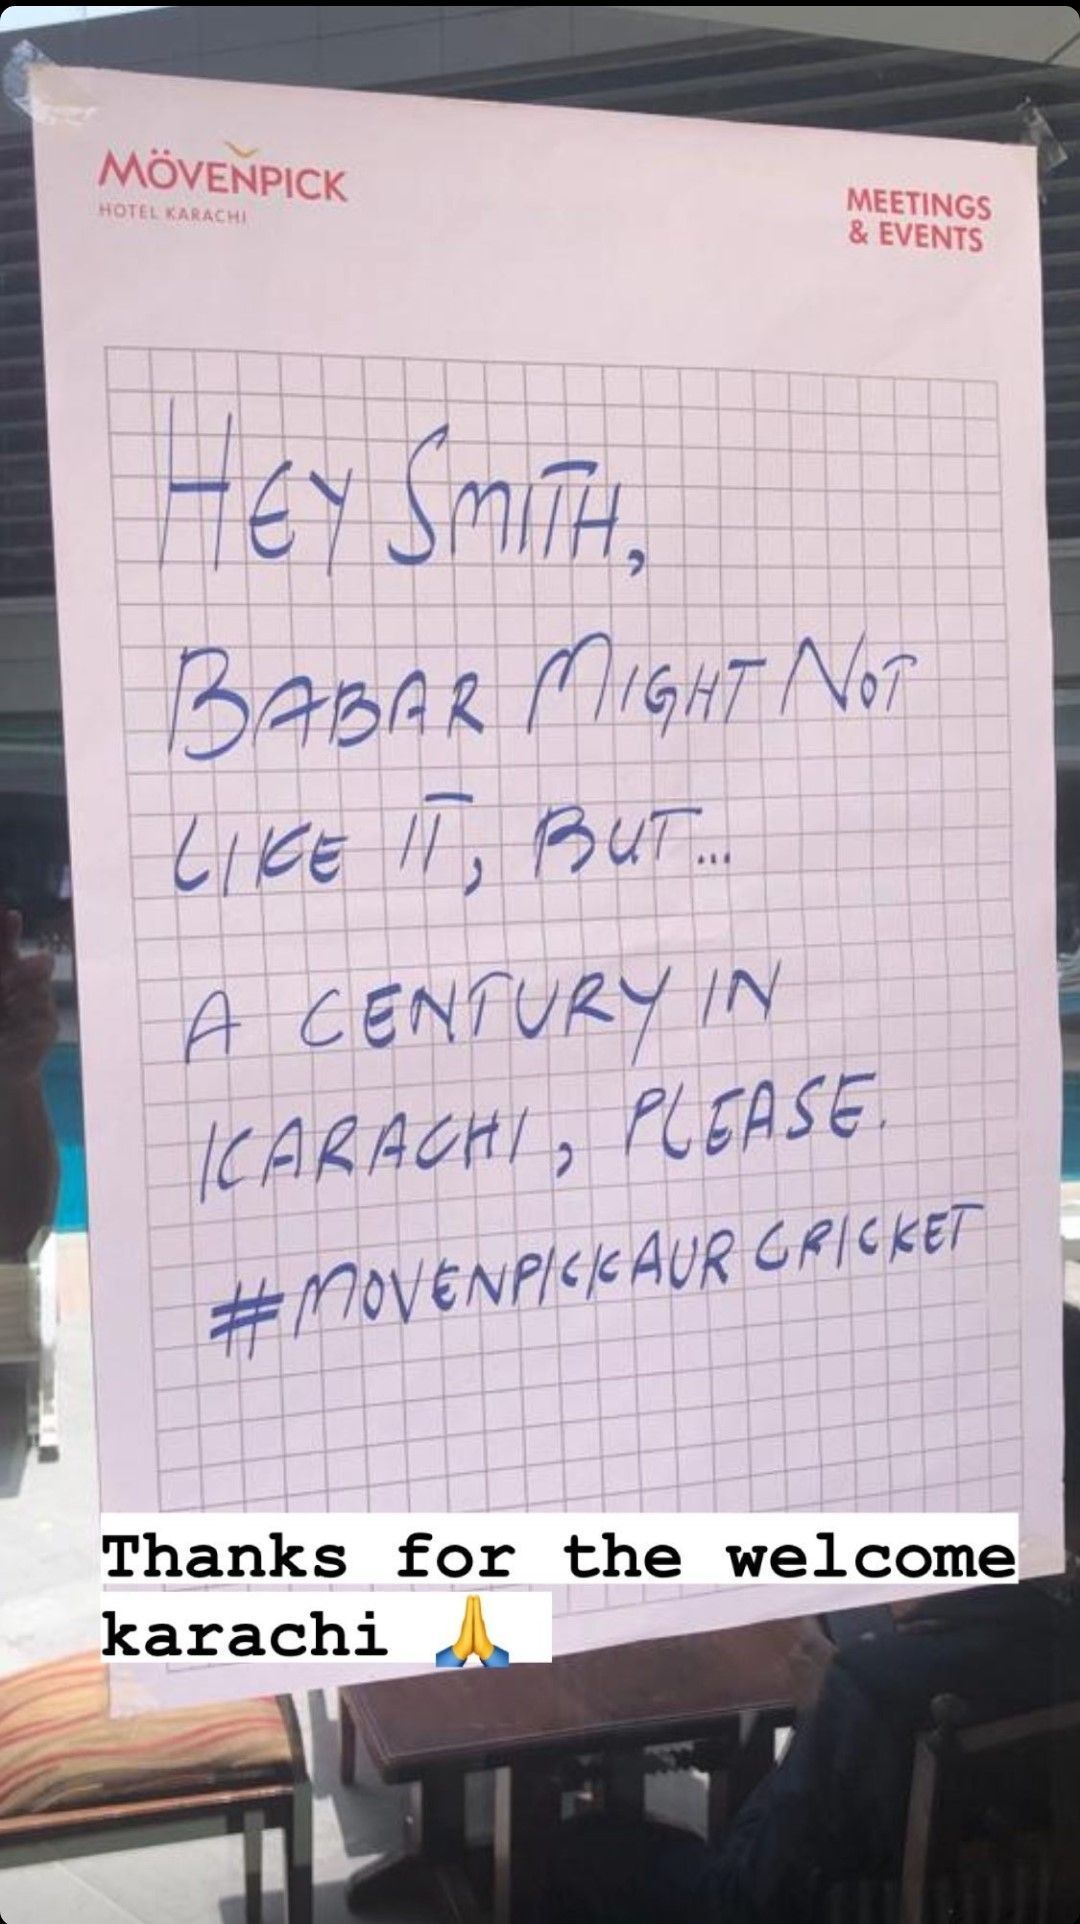 MÖVENPICK
HOTEL KARACHI
MEETINGS
& EVENTS
HEY SMITH,
BABAR MIGHT NOT
LIKE IT, BUT...
A CENTURY IN
KARACHI, PLEASE.
#MOVENPICKAUR CRICKET
Thanks for the welcome
karachi 🙏